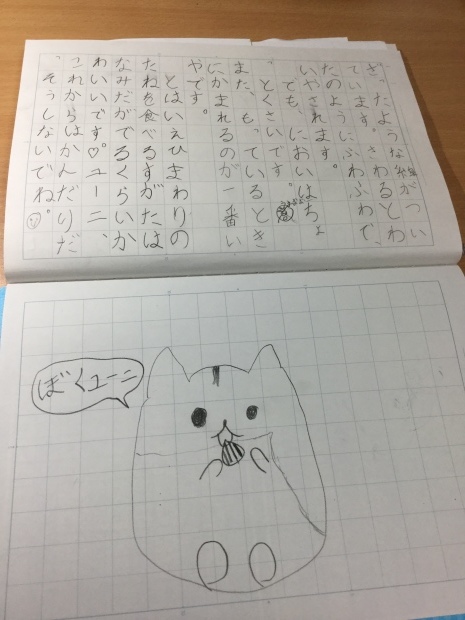 ざったような絵がつい
ています。さわるとわ
たのようにふわふわで、
いやされます。
でも、においはちょ
っとくさいです。
また、もっているとき
にかまれるのが一番い
やです。
とはいえひまわりの
たねを食べるすがたは
なみだがでるくらいか
わいいです♡ユーニ、
これからはかんだりだ
っそうしないでね。
ぼくユーニ